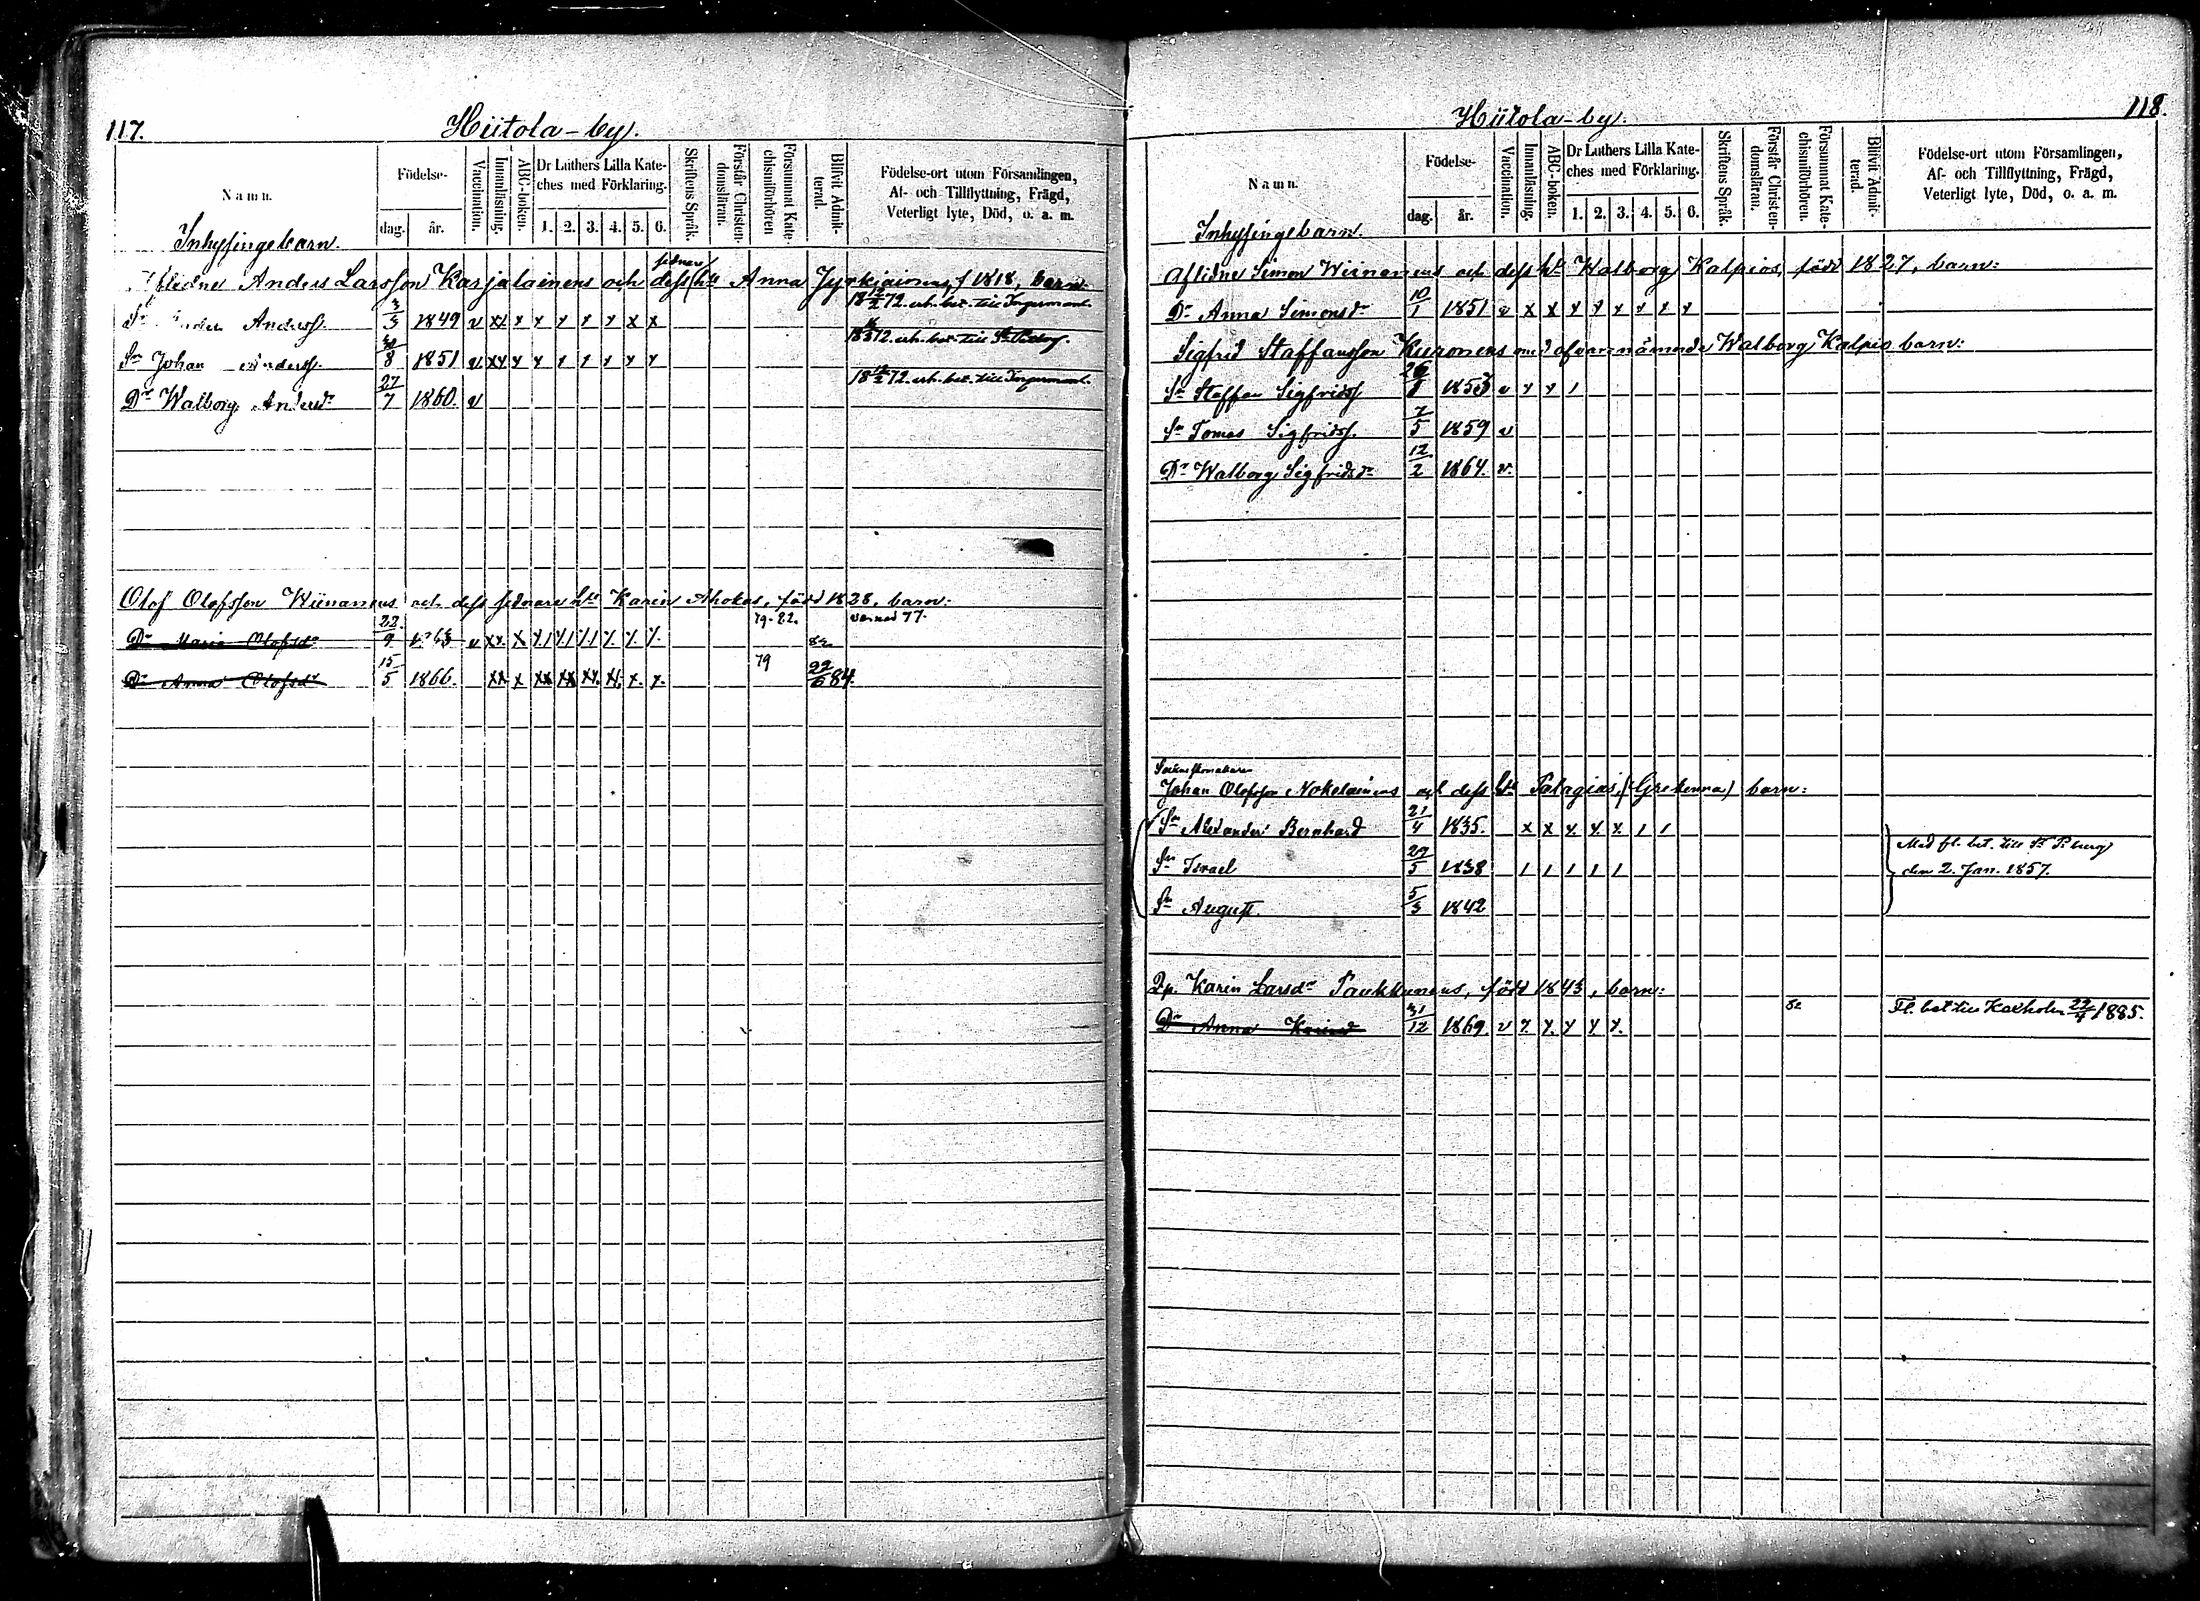 117.
Hiitola-by.
Namn.
Födelse-
dag.
år.
Vaccination.
Innanläsning.
ABC-boken.
Dr Luthers Lilla Kate-
ches med Förklaring.
1. 2. 3. 4. 5. 6.
Skriftens Språk.
Förstår Christen-
domsläran.
Försummat Kate-
chismiförhören
Blifvit Admit-
terad.
Födelse-ort utom Församlingen,
Af- och Tillflyttning, Frägd,
Veterligt lyte, Död, o. a. m.
Inhysingebarn.
Aflidne Anders Larsson Karjalainens och dess sednare h:u Anna f 1818, barn:
Andersß. 3/3 1849 v xx x x 1 1 1 x x 18 /2 72. erh. bet. till Ingermanl.
Sn Johan Andersß. 30/8 1851 v xx x x 1 1 x x x 18 /3 72. erh. bet. till
Dr Walborg Andersdr 27/7 1860. v 18 /2 72. erh. bet. till Ingermanl.
Olof Olofsson Wiinanens och dess sednare h:u Karin Ahokas, född 1828, barn:
Dr Maria Olofsdr 22/9 v xx x x1 x1 x1 x x x. 79-82. 82
Dr Anna Olofsdr 15/5 1866. xx x xx xx xx xx. x. x. 79 22/6 84.
118.
Hiitola-by.
Namn.
Födelse-
dag.
år.
Vaccination.
Innanläsning.
ABC-boken.
Dr Luthers Lilla Kate-
ches med Förklaring.
1. 2. 3. 4. 5. 6.
Skriftens Språk.
Förstår Christen-
domsläran.
Försummat Kate-
chismiförhören.
Blifvit Admit-
terad.
Födelse-ort utom Församlingen,
Af- och Tillflyttning, Frägd,
Veterligt lyte, Död, o. a. m.
Inhysingebarn.
Aflidne Simon Wiinanens och dess h:u Walborg Kalpios, född 1827, barn:
Dr Anna Simonsdr 10/1 1851 v x x x x x x 1 x
Sigfrid Staffansson Kuronens med ofvannämnde Walborg Kalpio barn:
Sn Staffan Sigfridsß 1853 v x x 1
Sn Tomas Sigfridsß. 7/5 1859 v
Dr Walborg Sigfridsdr 12/2 1864. v.
Johan Olofsson Nokelainens och dess h:u Palagias, (Grekenna) barn:
Sn Alexander Bernhard 21/4 1835. x x x. x. x. 1 1
Med fl. bet. till St P.burg
Sn Israel 29/5 1838 1 1 1 1 1
den 2. Jan. 1857.
Sn August. 5/3 1842
Qp. Karin Larsdr Paukkunens, född 1843, barn:
Dr Anna 31/12 1869. v x. x. x x x. 82 Fl. bet till Kexholm 22/4 1885.